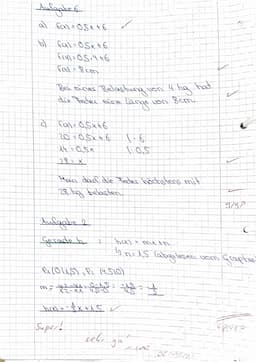 Aufgabe 6
a) f(x) = 0,5x + 6
b) f(x) = 0,5x + 6
f(x) = 0,5 · 4 + 6
f(x) = 8cm
Bei einer Belastung von 4 kg hat
die Feder eine Länge von 8cm.
c) f(x) = 0,5x + 6
20 = 0,5x + 6 | - 6
14 = 0,5x | : 0,5
28 = x
Man darf die Feder höchstens mit
28 kg belasten.
Aufgabe 2
Gerade h : h(x) = mx + n
n = 1,5 (abgelesen vom Graphen
h(x) = x + 1,5
Super!
sehr gut